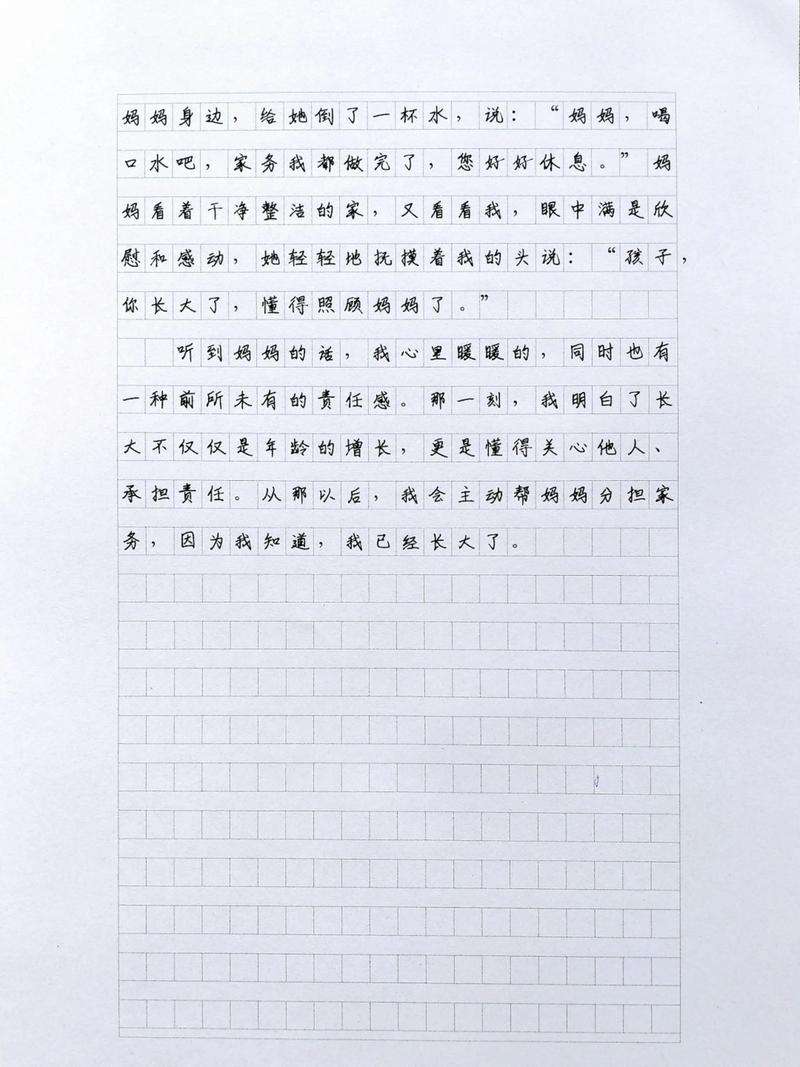 妈妈身边，给她倒了一杯水，说：“妈妈，喝
口水吧，家务我都做完了，您好好休息。”妈
妈看着干净整洁的家，又看看我，眼中满是欣
慰和感动，她轻轻地抚摸着我的头说：“孩子，
你长大了，懂得照顾妈妈了。”
听到妈妈的话，我心里暖暖的，同时也有
一种前所未有的责任感。那一刻，我明白了长
大不仅仅是年龄的增长，更是懂得关心他人、
承担责任。从那以后，我会主动帮妈妈分担家
务，因为我知道，我已经长大了。